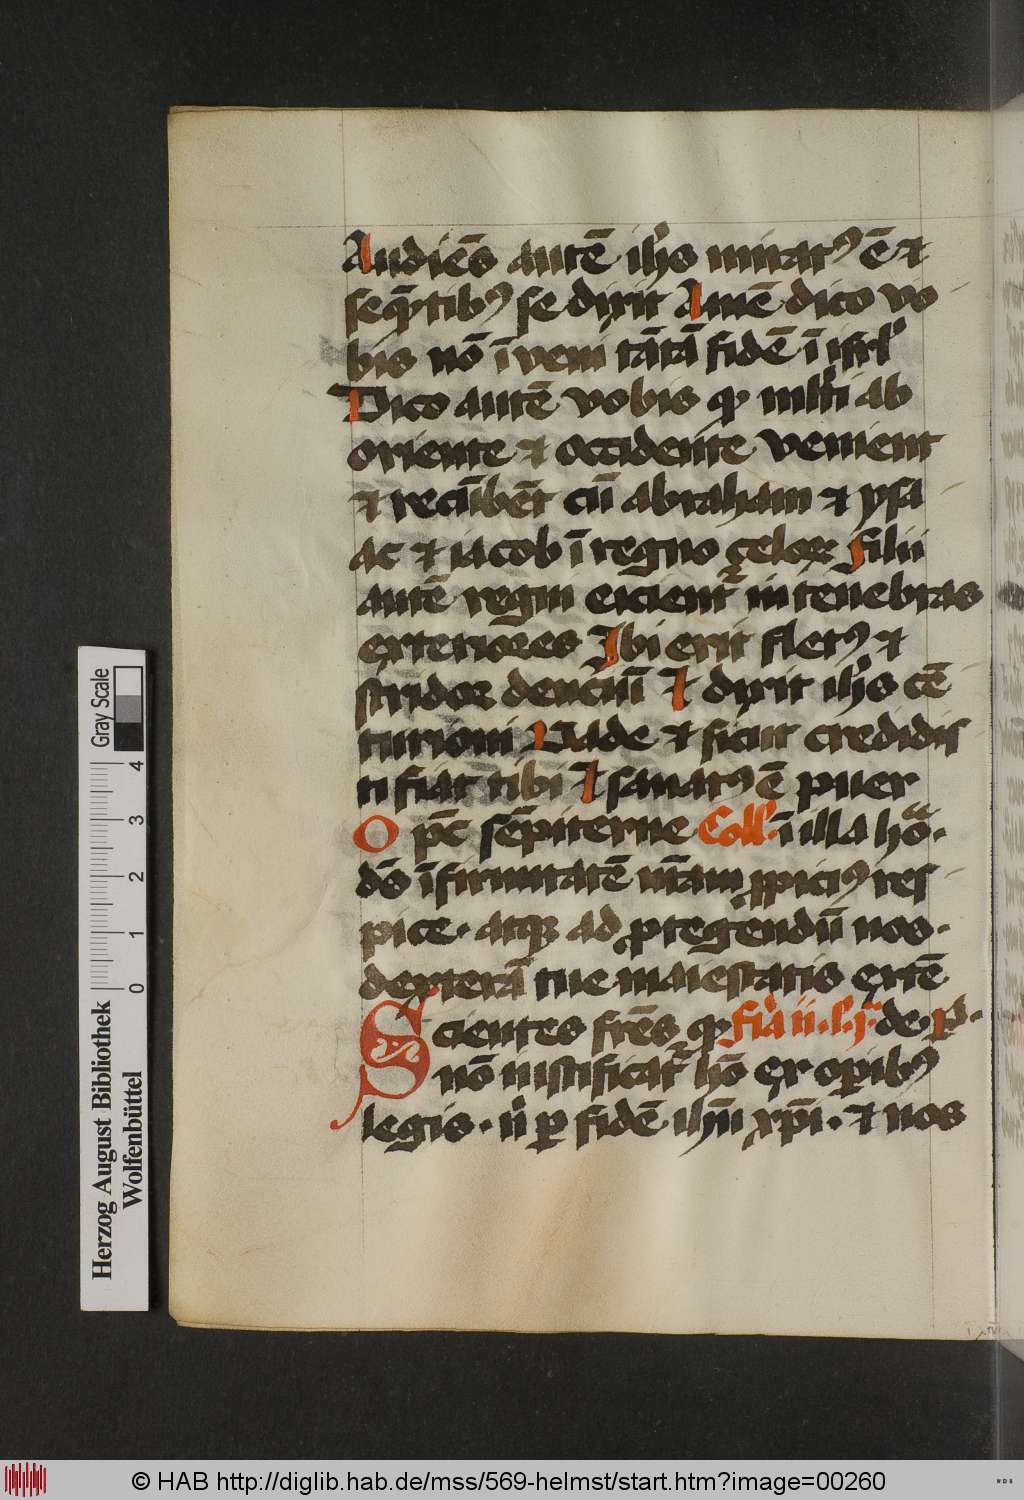 Audiēs autē ih̓s mirat᷒ ē ⁊
seq̄ntib᷒ se dixit Amē dico vo
bis nō īveni tātā fidē ī isrl̓
Dico autē vobis qꝫ ml̓ti ab
oriente ⁊ occidente venient
⁊ recūbēt cū abraham ⁊ ysa
ac ⁊ iacob ī regno celoꝝ filii
autē regni eicient̉ in tenebras
exteriores Ibi erit flet᷒ ⁊
stridor denciū ⁊ dixit ih̓s cē
turioni Vade ⁊ sicut credidis
ti fiat tibi ⁊ sanat᷒ ē puer
O p̄c sēpiterne Coll̓. ī illa hō.
ds̄ īfirmitatē nr̄am ꝓpici᷒ res
pice. atqꝫ ad ꝓtegendū nos.
dexterā tue maiestatis extē
Scientes frēs qꝫ fīa ii. l. ī. de. p̄.
nō iustificat̉ hō ex oꝑib᷒
legis. n̓ ꝑ fidē ihū xp̄i. ⁊ nos
Herzog August Bibliothek
Wolfenbüttel
0 1 2 3 4
Gray Scale
© HAB http://diglib.hab.de/mss/569-helmst/start.htm?image=00260